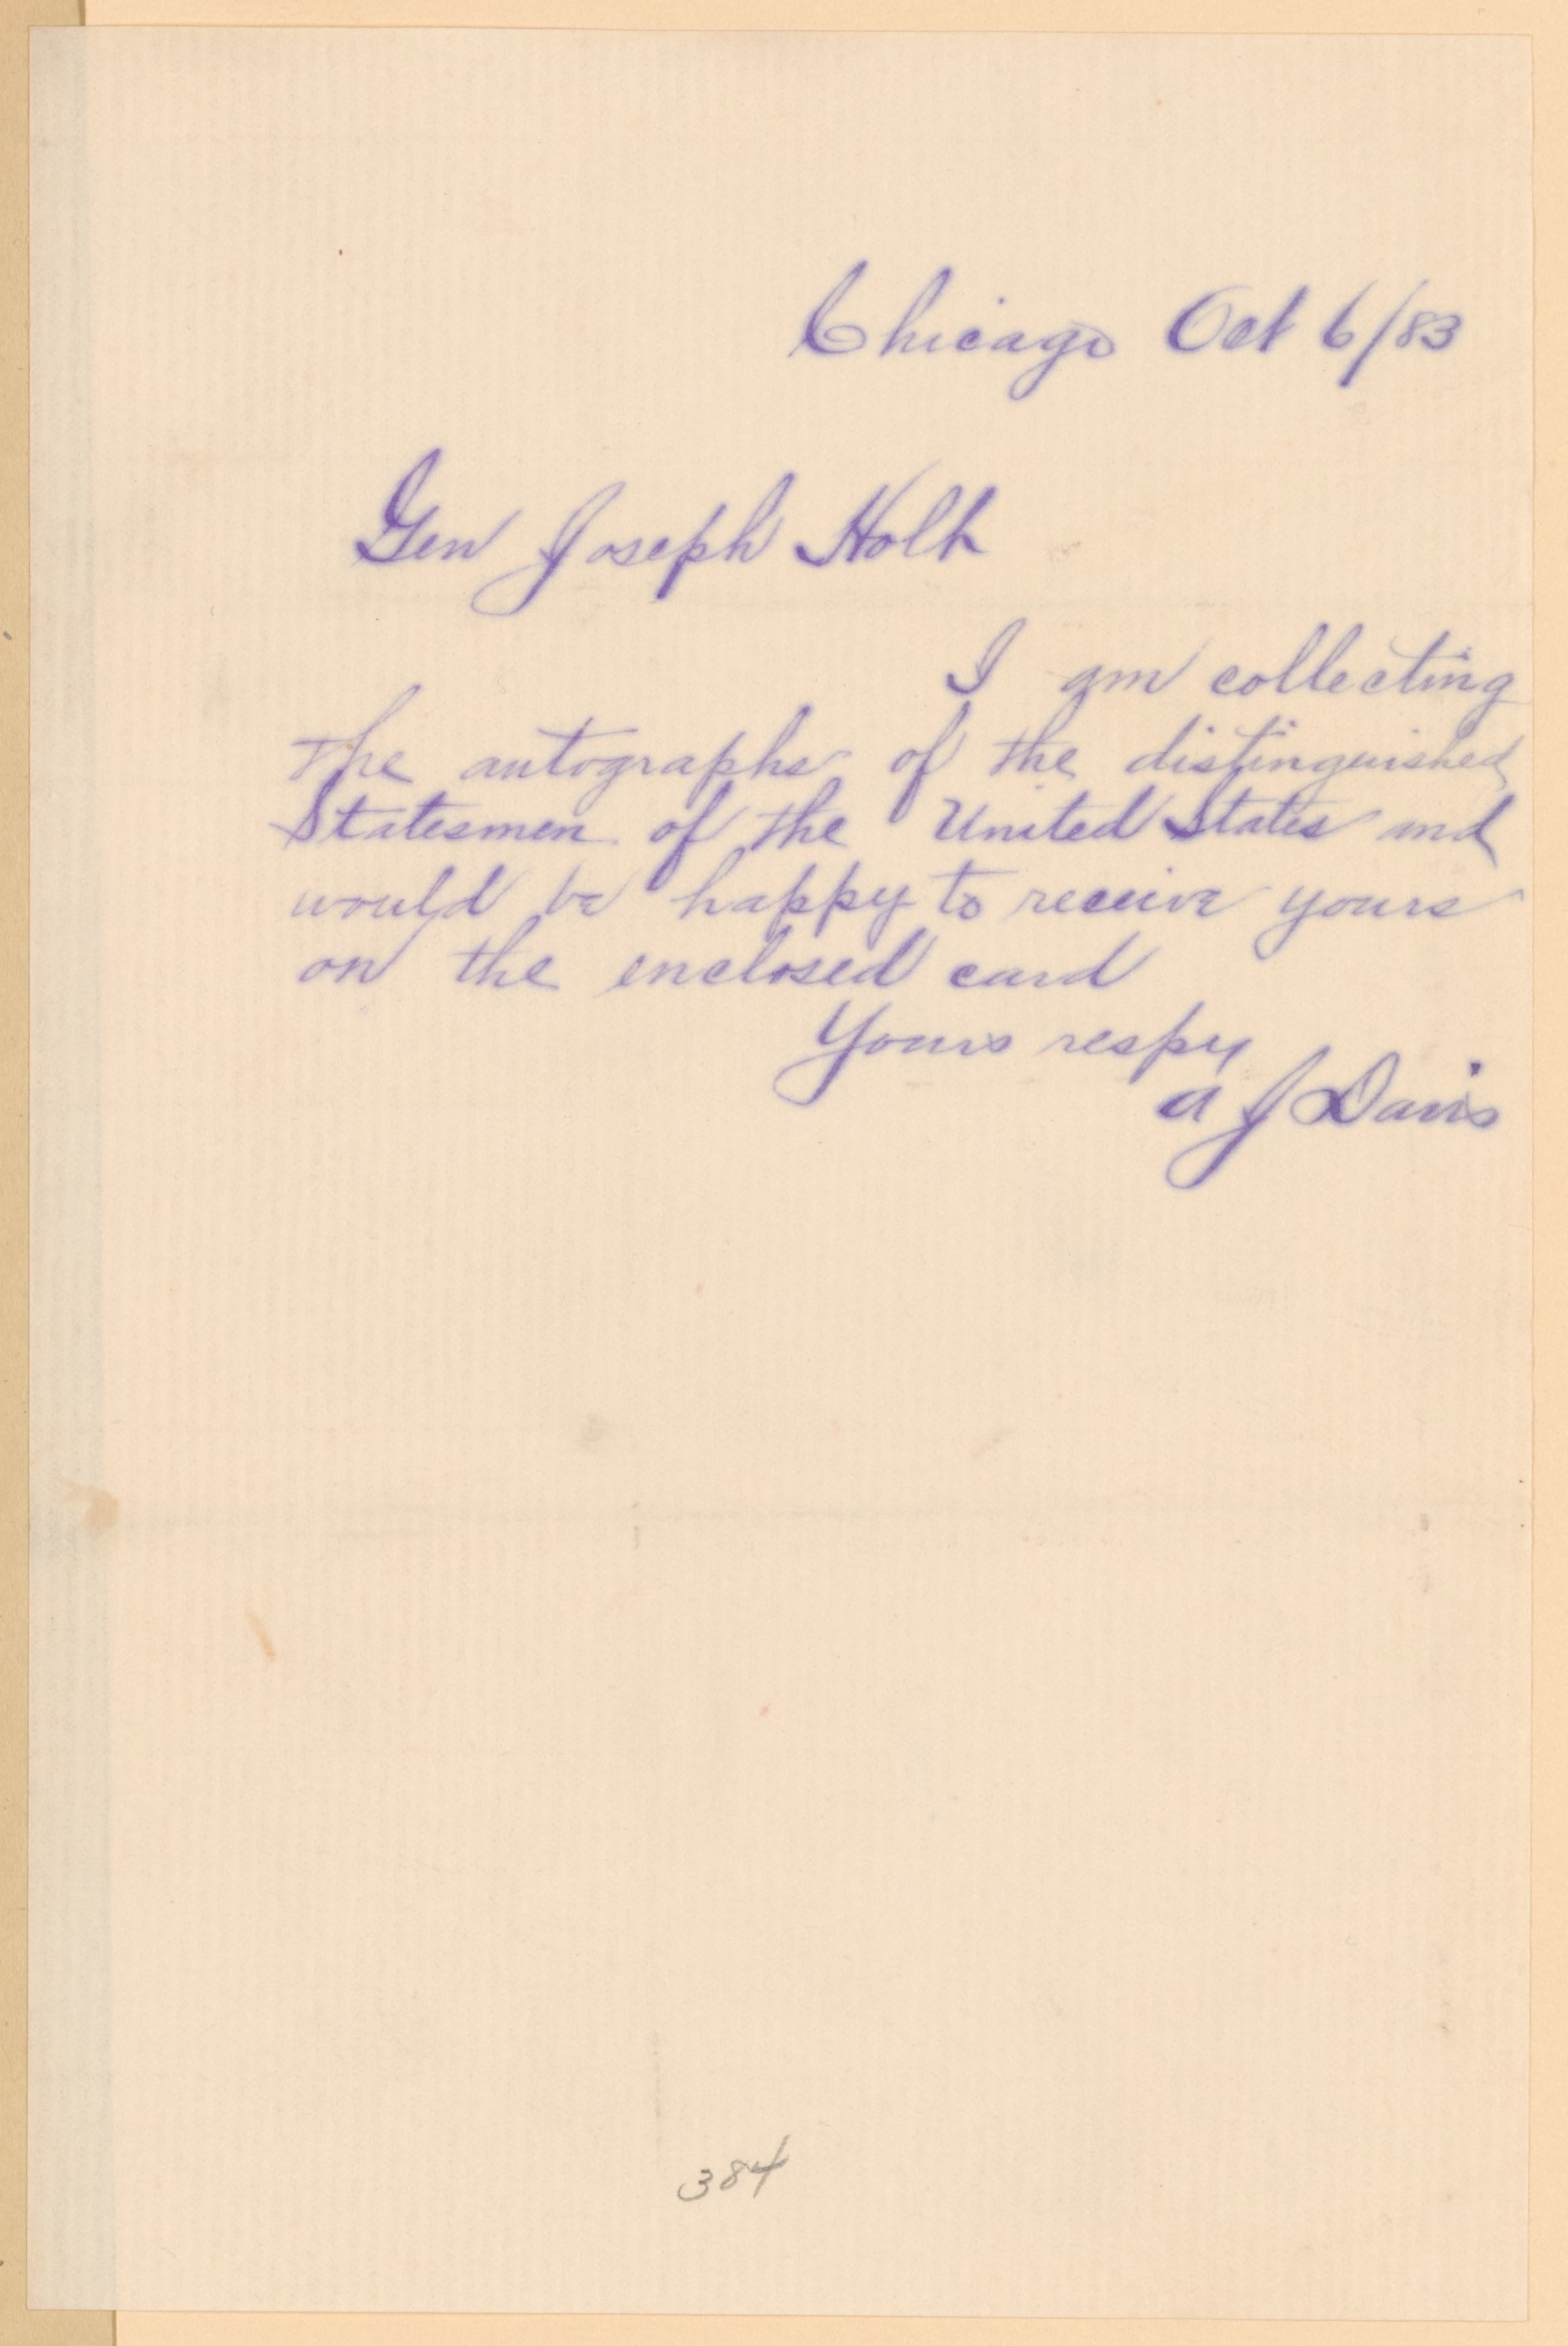 Chicago Oct 6/83
Gen Joseph Holt
I am collecting
the autographs of the distinguished
Statesmen of the United States and
would be happy to receive yours
on the enclosed card
Yours respy
A J Davis
384